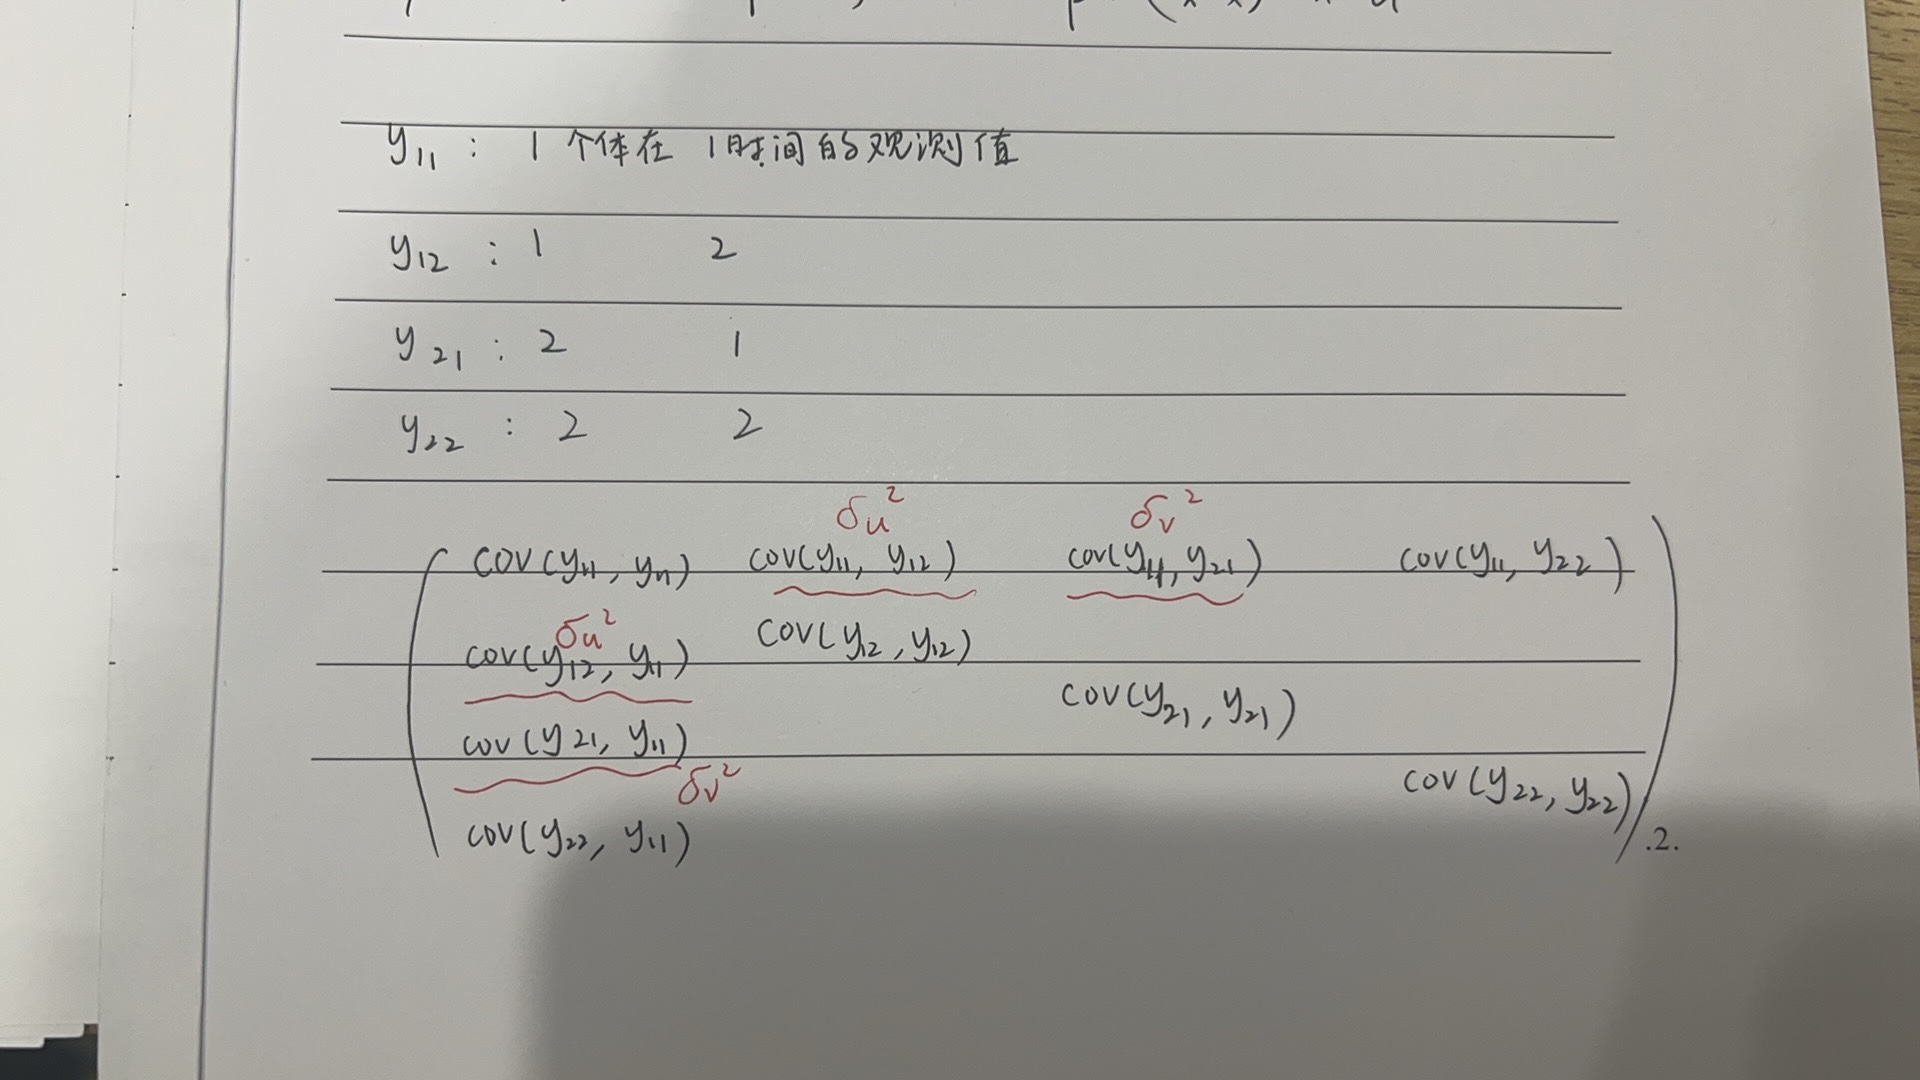 y₁₁ : 1 个体在 1时间的观测值
y₁₂ : 1 2
y₂₁ : 2 1
y₂₂ : 2 2
δu² δv²
cov(y₁₁, y₁₁) cov(y₁₁, y₁₂) cov(y₁₁, y₂₁) cov(y₁₁, y₂₂)
δu²
cov(y₁₂, y₁₁) cov(y₁₂, y₁₂)
cov(y₂₁, y₁₁) cov(y₂₁, y₂₁)
δv²
cov(y₂₂, y₁₁) cov(y₂₂, y₂₂)
.2.